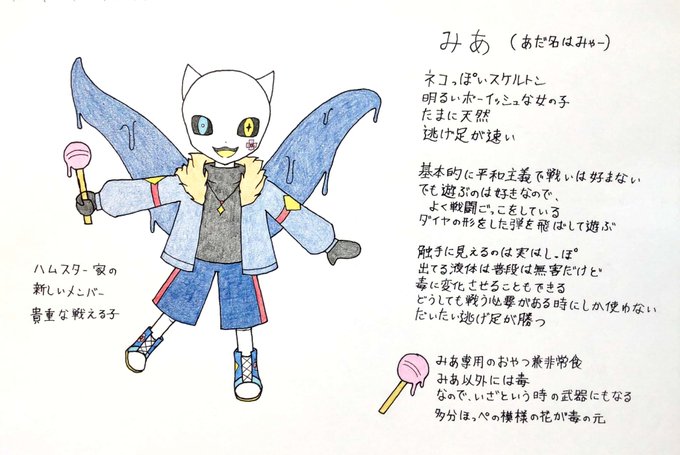 みあ (あだ名はみゃー)
ネコっぽいスケルトン
明るいボーイッシュな女の子
たまに天然
逃げ足が速い
基本的に平和主義で戦いは好まない
でも遊ぶのは好きなので、
よく戦闘ごっこをしている
ダイヤの形をした弾を飛ばして遊ぶ
触手に見えるのは実はしっぽ
出てる液体は普段は無害だけど
毒に変化させることもできる
どうしても戦う必要がある時にしか使わない
だいたい逃げ足が勝つ
ハムスター家の
新しいメンバー
貴重な戦える子
みあ専用のおやつ兼非常食
みあ以外には毒
なので、いざという時の武器にもなる
多分ほっぺの模様の花が毒の元